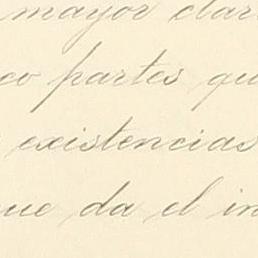 mayor clar
co partes qu
existencias
que da el in